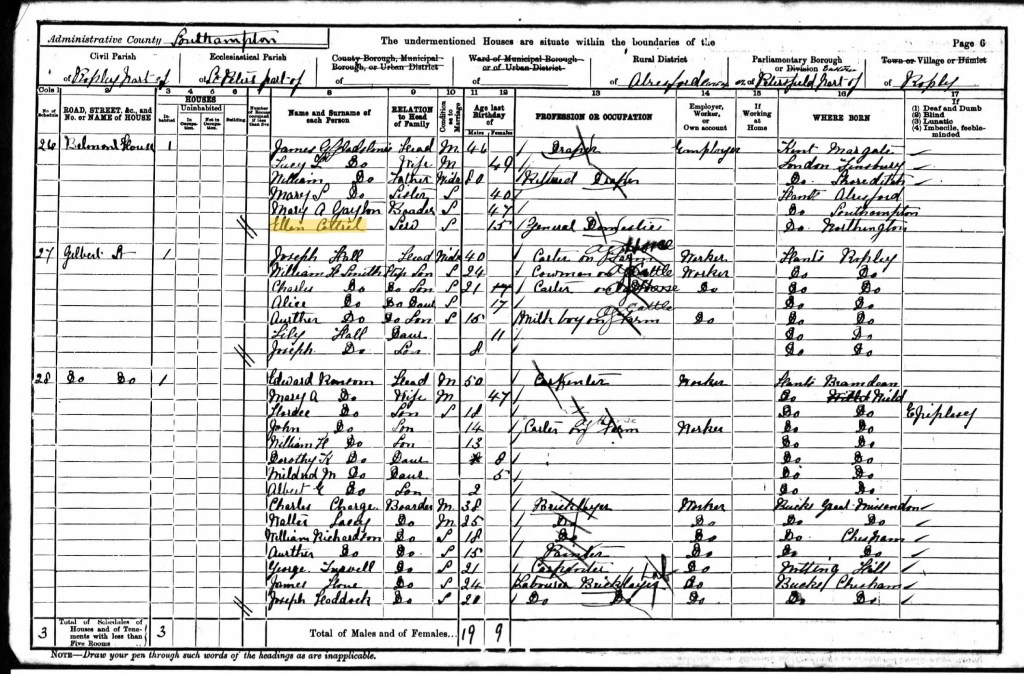 Administrative County Southampton
The undermentioned Houses are situate within the boundaries of the
Page 6
Civil Parish
of Ropley Part of
Ecclesiastical Parish
of St Peters part of
County Borough, Municipal Borough, or Urban District
of
Ward of Municipal Borough or of Urban District
of
Rural District
of Alresford
Parliamentary Borough or Division
of Petersfield Part of
Town or Village or Hamlet
of Ropley
Cols 1 2 3 4 5 6 7 8 9 10 11 12 13 14 15 16 17
No. of Schedule
ROAD, STREET, &c., and No. or NAME of HOUSE
HOUSES
Inhabited
Uninhabited
In Occupation
Not in Occupation
Building
Number of Rooms occupied if less than five
Name and Surname of each Person
RELATION to Head of Family
Condition as to Marriage
Age last Birthday of
Males Females
PROFESSION OR OCCUPATION
Employer, Worker, or Own account
If Working at Home
WHERE BORN
If (1) Deaf and Dumb (2) Blind (3) Lunatic (4) Imbecile, feeble-minded
26 Belmont House 1 James G Gladstone Head M 46 Draper Employer Kent Margate
Lucy Do Wife M 49 London Finsbury
William Do Father Wid 80 Retired Draper Do Shoreditch
Mary S Do Sister S 40 Hants Alresford
Mary A Boarder S 47 Do Southampton
Ellen Cottrel Serv S 15 General Domestic Do Northington
27 Gilbert St 1 Joseph Hall Head Wid 40 Carter on Farm Horse Worker Hants Ropley
William H Smith Step Son S 24 Cowman on Cattle Worker Do Do
Charles Do Do Son S 21 Carter on Horse Do Do Do
Alice Do Do Daur S 17 Do Do
Aurther Do Do Son S 15 Milk boy on Farm Cattle Do Do Do
Lily Hall Daur 11 Do Do
Joseph Do Son 8 Do Do
28 Do Do 1 Edward Ransom Head M 50 Carpenter Worker Hants Bramdean
Mary A Do Wife M 47 Do
Do Son S 18 Do Do Epilepsy
John Do Son 14 Carter on Farm Worker Do Do
William H Do Son 13 Do Do
Dorothy K Do Daur 8 Do Do
Mildred M Do Daur 5 Do Do
Albert E Do Son 2 Do Do
Charles Charge Boarder M 38 Bricklayer Worker Bucks Great Missendon
Walter Lacey Do M 25 Do Do Do Do
William Richardson Do S 18 Do Do Do Chesham
Aurther Do Do S 15 Painter Do Do Do
George Do S 21 Carpenter Do Notting Hill
James Do S 24 Labourer Bricklayer Do Bucks Chesham
Joseph Do S 20 Do Do Do Do Do
3 Total of Schedules of Houses and of Tenements with less than Five Rooms 3
Total of Males and of Females... 19 9
NOTE—Draw your pen through such words of the headings as are inapplicable.